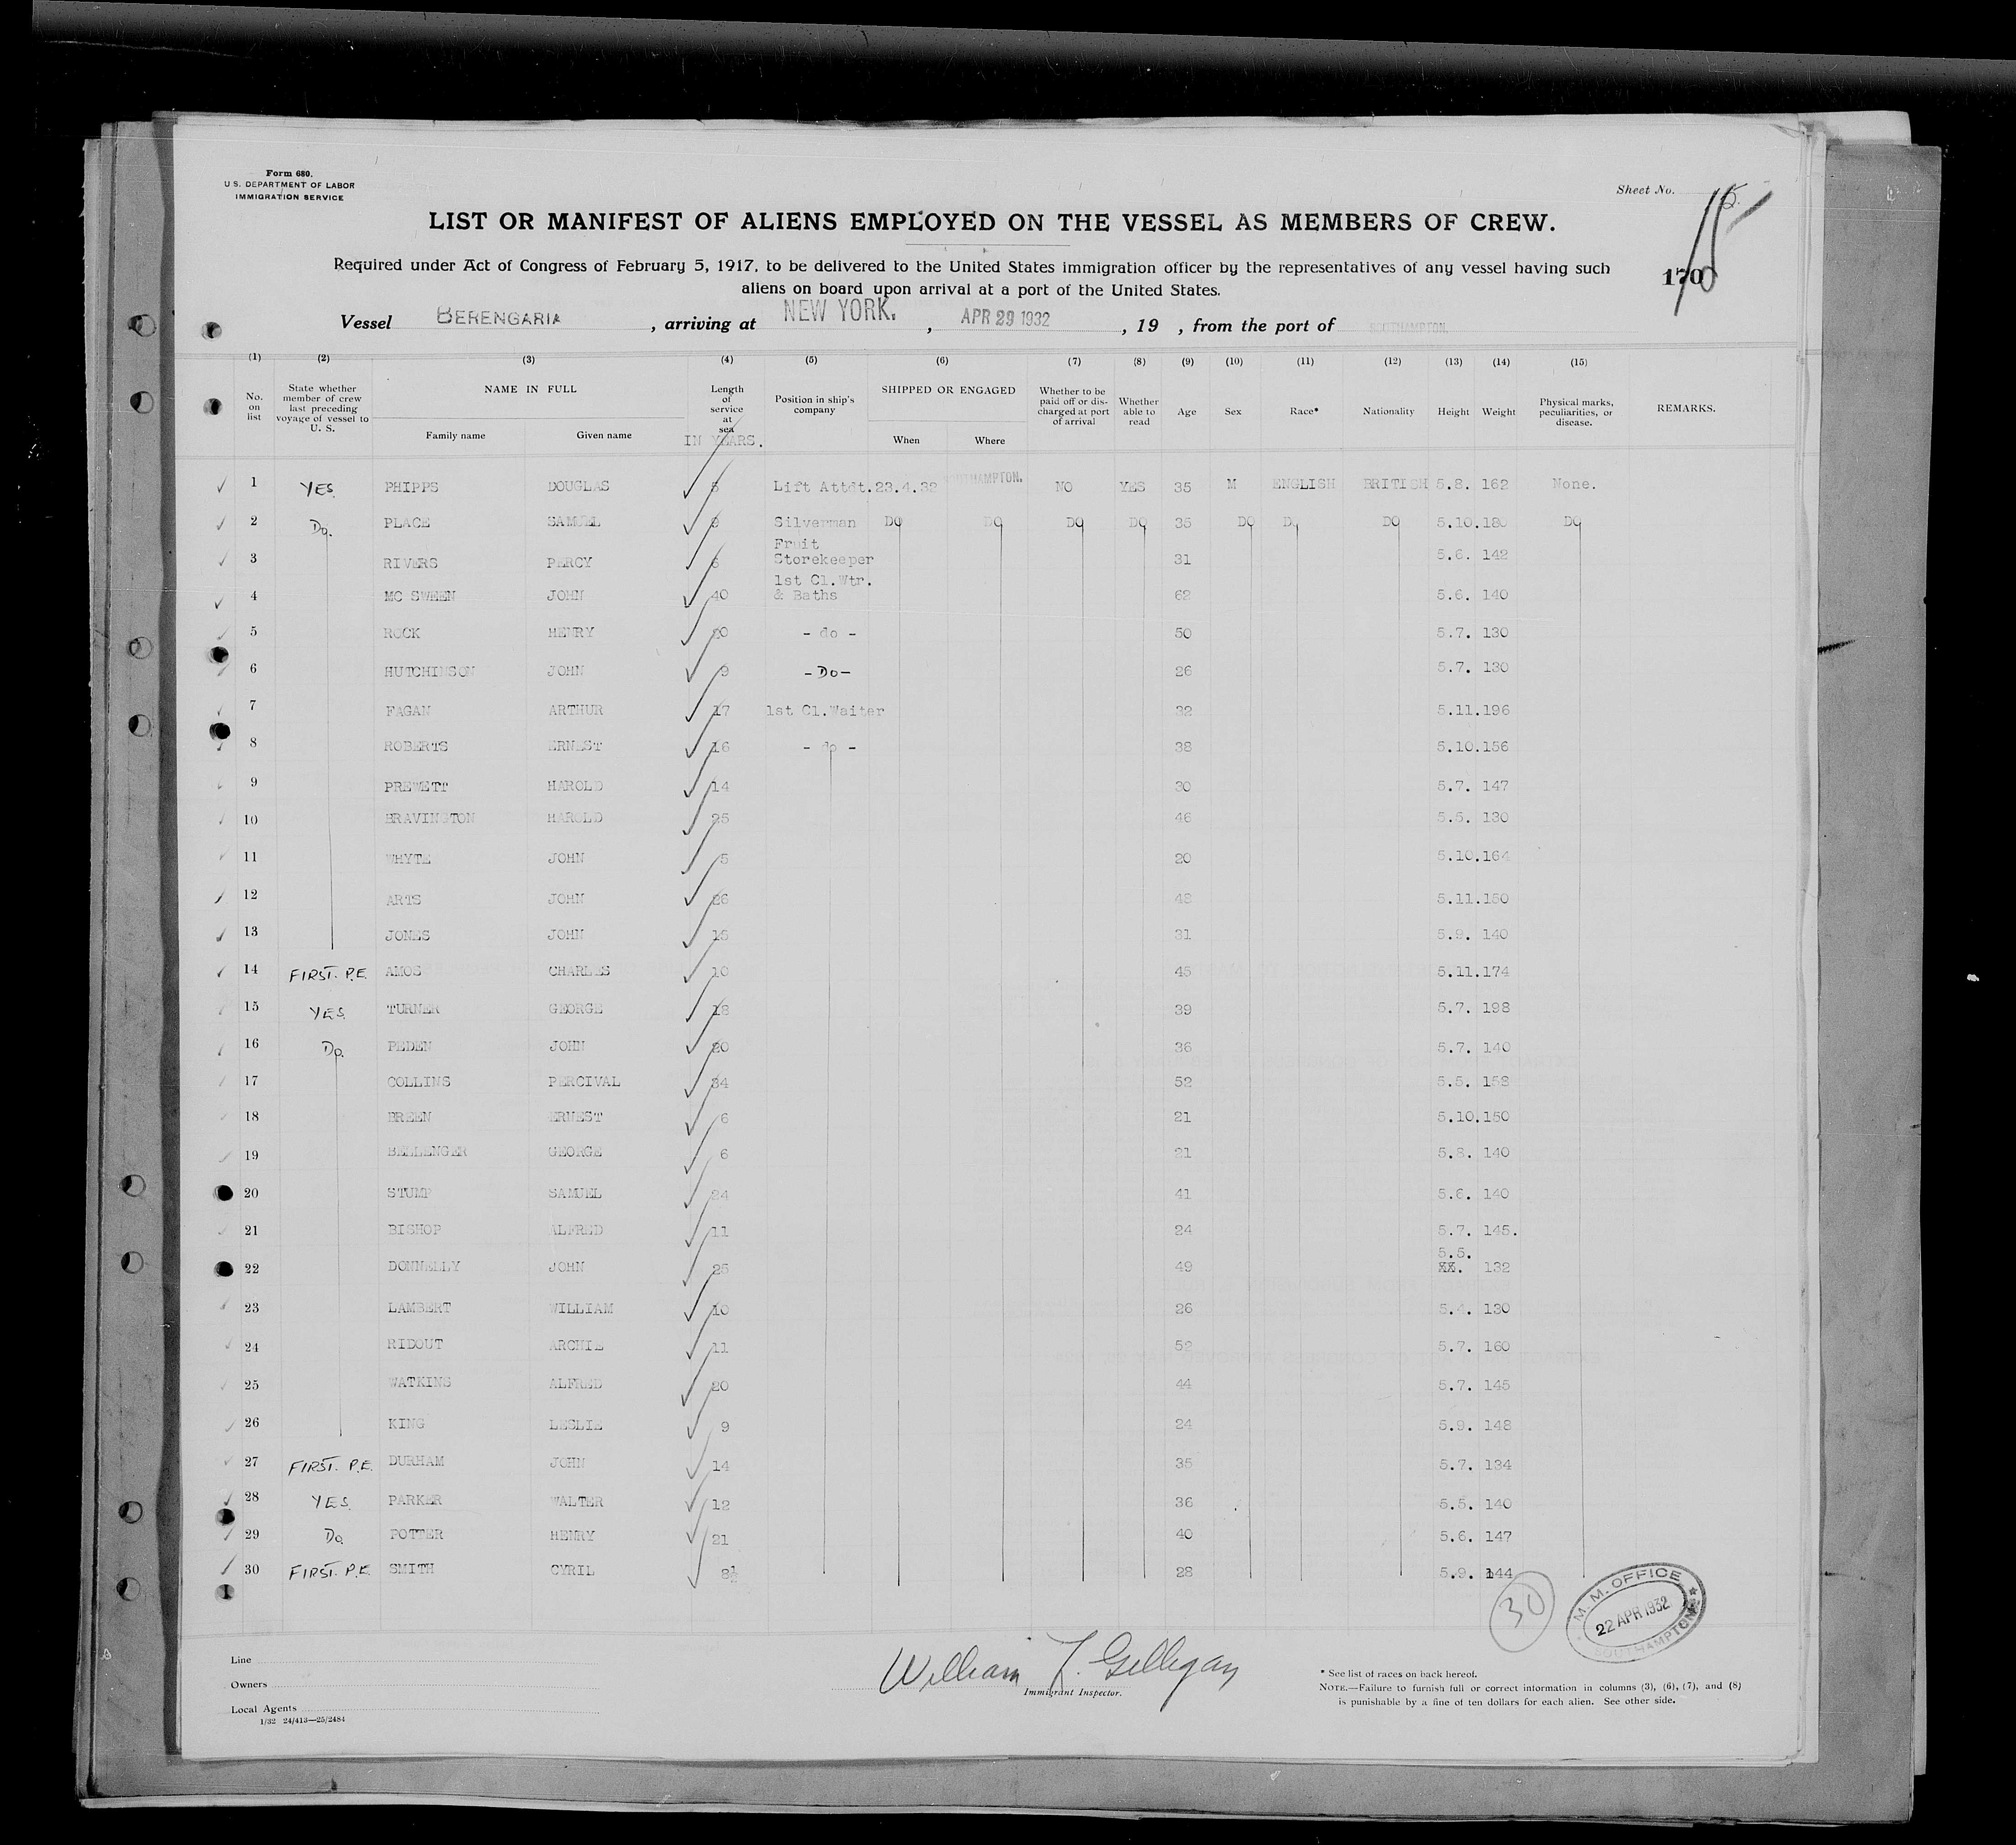 Form 680.
U.S. DEPARTMENT OF LABOR
IMMIGRATION SERVICE
Sheet No.
LIST OR MANIFEST OF ALIENS EMPLOYED ON THE VESSEL AS MEMBERS OF CREW.
Required under Act of Congress of February 5, 1917, to be delivered to the United States immigration officer by the representatives of any vessel having such
aliens on board upon arrival at a port of the United States.
170
Vessel BERENGARIA, arriving at NEW YORK., APR 29 1932, 19 , from the port of SOUTHAMPTON.
(1) (2) (3) (4) (5) (6) (7) (8) (9) (10) (11) (12) (13) (14) (15)
No. on list State whether member of crew last preceding voyage of vessel to U. S. NAME IN FULL Family name Given name Length of service at sea IN YEARS. Position in ship's company SHIPPED OR ENGAGED When Where Whether to be paid off or discharged at port of arrival Whether able to read Age Sex Race* Nationality Height Weight Physical marks, peculiarities, or disease. REMARKS.
1 YES. PHIPPS DOUGLAS Lift Attdt. 23.4.32 SOUTHAMPTON. NO YES 35 M ENGLISH BRITISH 5.8. 162 None.
2 Do. PLACE SAMUEL Silverman DO DO DO DO 35 DO DO DO 5.10. 180 DO
3 RIVERS PERCY Fruit Storekeeper 31 5.6. 142
4 MC SWEEN JOHN 40 1st Cl.Wtr. & Baths 62 5.6. 140
5 ROCK HENRY - do - 50 5.7. 130
6 HUTCHINSON JOHN 9 -Do- 26 5.7. 130
7 FAGAN ARTHUR 17 1st Cl.Waiter 32 5.11. 196
8 ROBERTS ERNEST 16 - do - 38 5.10. 156
9 PREWETT HAROLD 14 30 5.7. 147
10 BRAVINGTON HAROLD 25 46 5.5. 130
11 WHYTE JOHN 5 20 5.10. 164
12 ARTS JOHN 26 48 5.11. 150
13 JONES JOHN 31 5.9. 140
14 FIRST. P.E. AMOS CHARLES 10 45 5.11. 174
15 YES. TURNER GEORGE 18 39 5.7. 198
16 Do. PEDEN JOHN 20 36 5.7. 140
17 COLLINS PERCIVAL 34 52 5.5. 158
18 BREEN ERNEST 6 21 5.10. 150
19 BELLENGER GEORGE 6 21 5.8. 140
20 STUMP SAMUEL 24 41 5.6. 140
21 BISHOP ALFRED 11 24 5.7. 145.
22 DONNELLY JOHN 25 49 5.5. XX. 132
23 LAMBERT WILLIAM 10 26 5.4. 130
24 RIDOUT ARCHIE 11 52 5.7. 160
25 WATKINS ALFRED 20 44 5.7. 145
26 KING LESLIE 9 24 5.9. 148
27 FIRST. P.E. DURHAM JOHN 14 35 5.7. 134
28 YES. PARKER WALTER 12 36 5.5. 140
29 Do. POTTER HENRY 21 40 5.6. 147
30 FIRST. P.E. SMITH CYRIL 8½ 28 5.9. 144
30
M. M. OFFICE
22 APR 1932
SOUTHAMPTON
Line
Owners
Local Agents
1/32 24/413—25/2484
William F. Gilligan
Immigrant Inspector.
* See list of races on back hereof.
NOTE.—Failure to furnish full or correct information in columns (3), (6), (7), and (8)
is punishable by a fine of ten dollars for each alien. See other side.